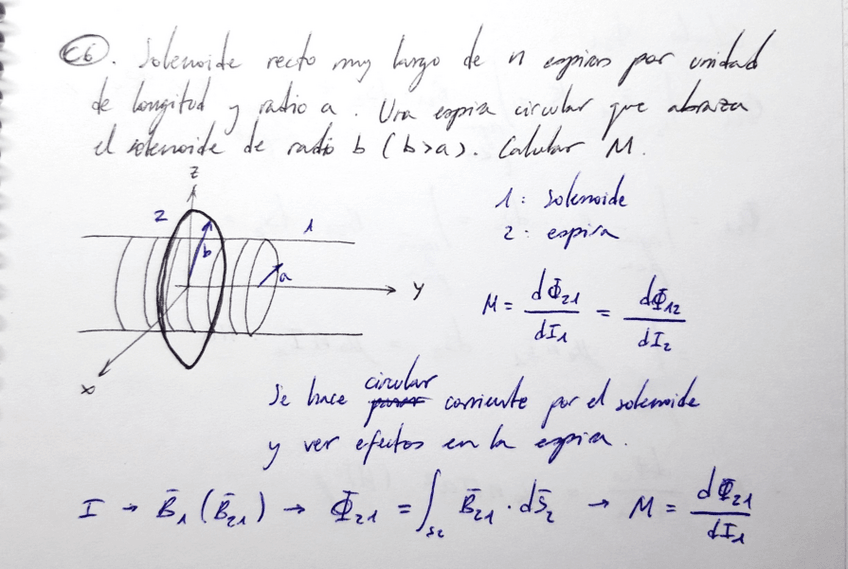 C6. Solenoide recto muy largo de n espiras por unidad
de longitud y radio a. Una espira circular que abraza
el solenoide de radio b (b>a). Calular M.
z
2
1
b
a
y
x
1: solenoide
2: espira
M = dΦ21/dI1 = dΦ12/dI2
Se hace circular corriente por el solenoide
y ver efectos en la espira.
I → B̄1 (B̄21) → Φ21 = ∫S2 B̄21 · dS̄2 → M = dΦ21/dI1